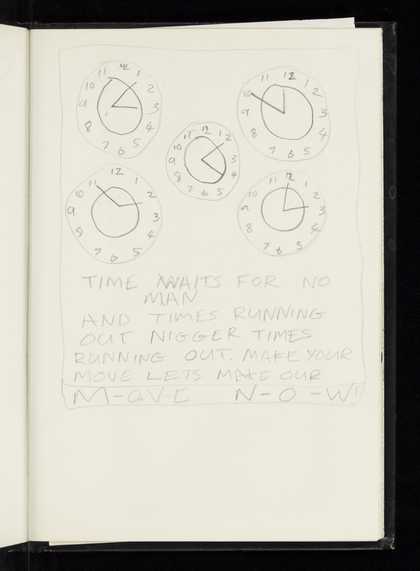 12 1 2 3 4 5 6 7 8 9 10 11
12 1 2 3 4 5 6 7 8 9 10 11
12 1 2 3 4 5 6 7 8 9 10 11
12 1 2 3 4 5 6 7 8 9 10 11
12 1 2 3 4 5 6 7 8 9 10 11
TIME WAITS FOR NO
MAN
AND TIMES RUNNING
OUT NIGGER TIMES
RUNNING OUT. MAKE YOUR
MOVE LETS MAKE OUR
M-OVE N-O-W!